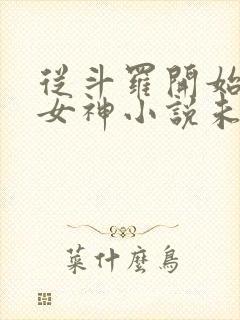 從斗羅開始
女神小說未
菜什麼鳥